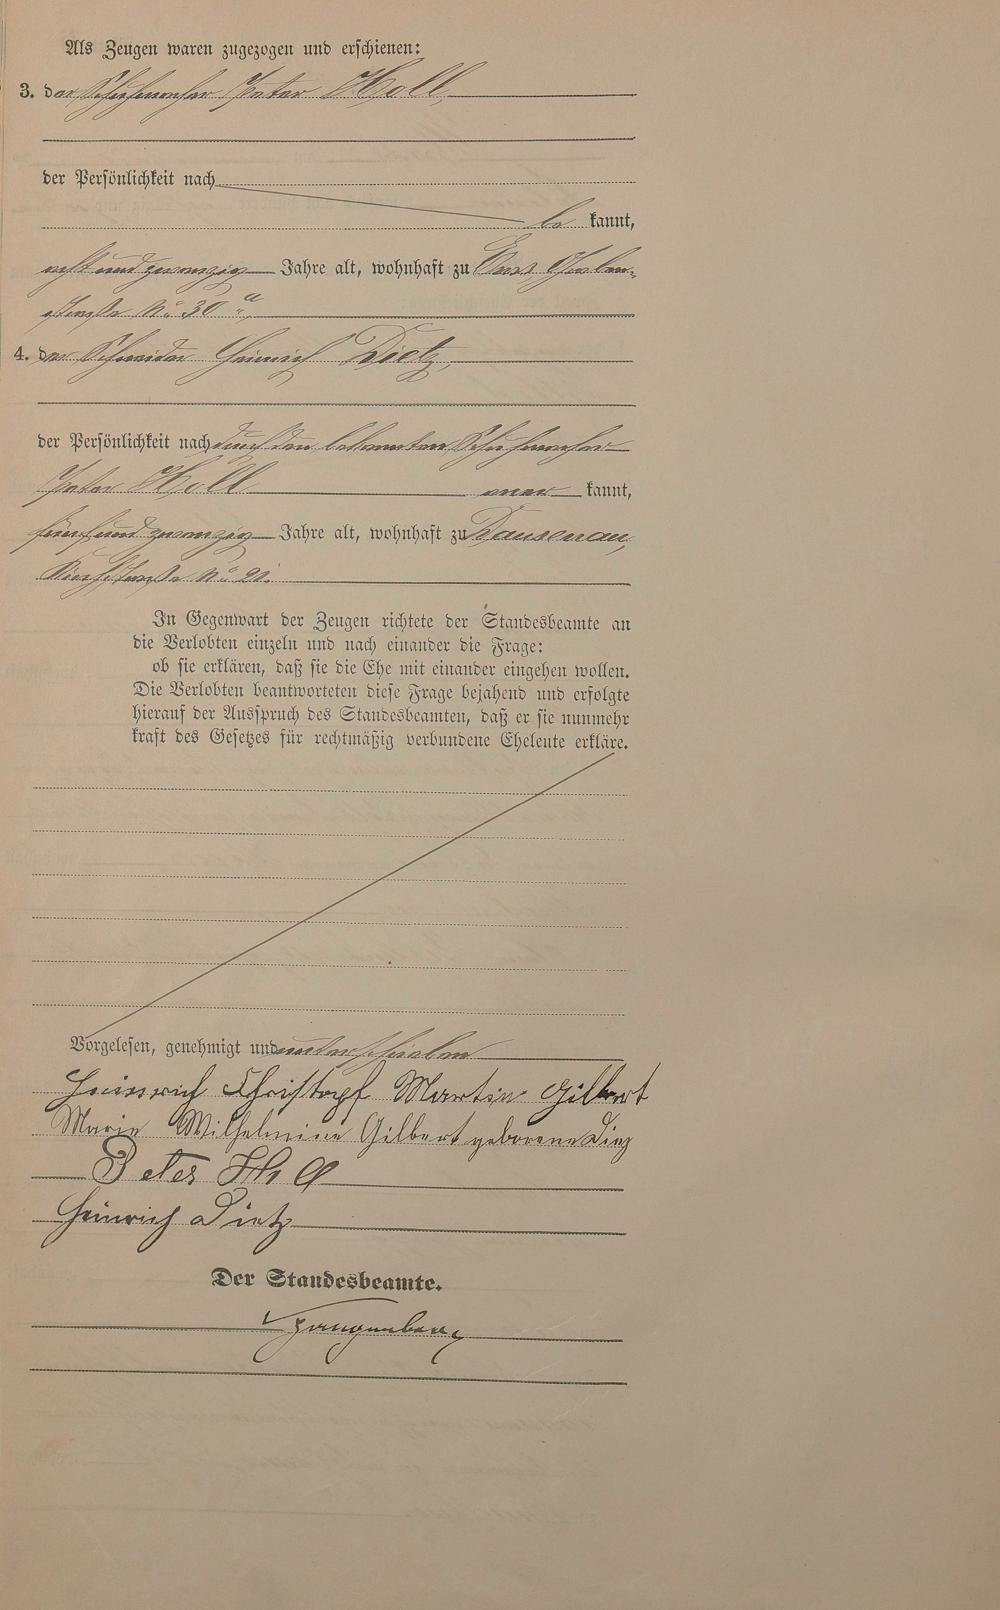 Als Zeugen waren zugezogen und erschienen:
3. der Schuhmacher Peter Holl
der Persönlichkeit nach
be kannt,
acht und zwanzig Jahre alt, wohnhaft zu Ems,
straße No 30 a,
4. der Schneider Heinrich Dietz,
der Persönlichkeit nach durch den bekannten Schuhmacher
Peter Holl aner kannt,
fünf und zwanzig Jahre alt, wohnhaft zu Dausenau,
Kirchstraße No 21.
In Gegenwart der Zeugen richtete der Standesbeamte an
die Verlobten einzeln und nach einander die Frage:
ob sie erklären, daß sie die Ehe mit einander eingehen wollen.
Die Verlobten beantworteten diese Frage bejahend und erfolgte
hierauf der Ausspruch des Standesbeamten, daß er sie nunmehr
kraft des Gesetzes für rechtmäßig verbundene Eheleute erkläre.
Vorgelesen, genehmigt und unterschrieben
Heinrich Christoph Martin Gilbert
Marie Wilhelmine Gilbert geborene Dietz
Peter Holl
Heinrich Dietz
Der Standesbeamte.
Spangenberg